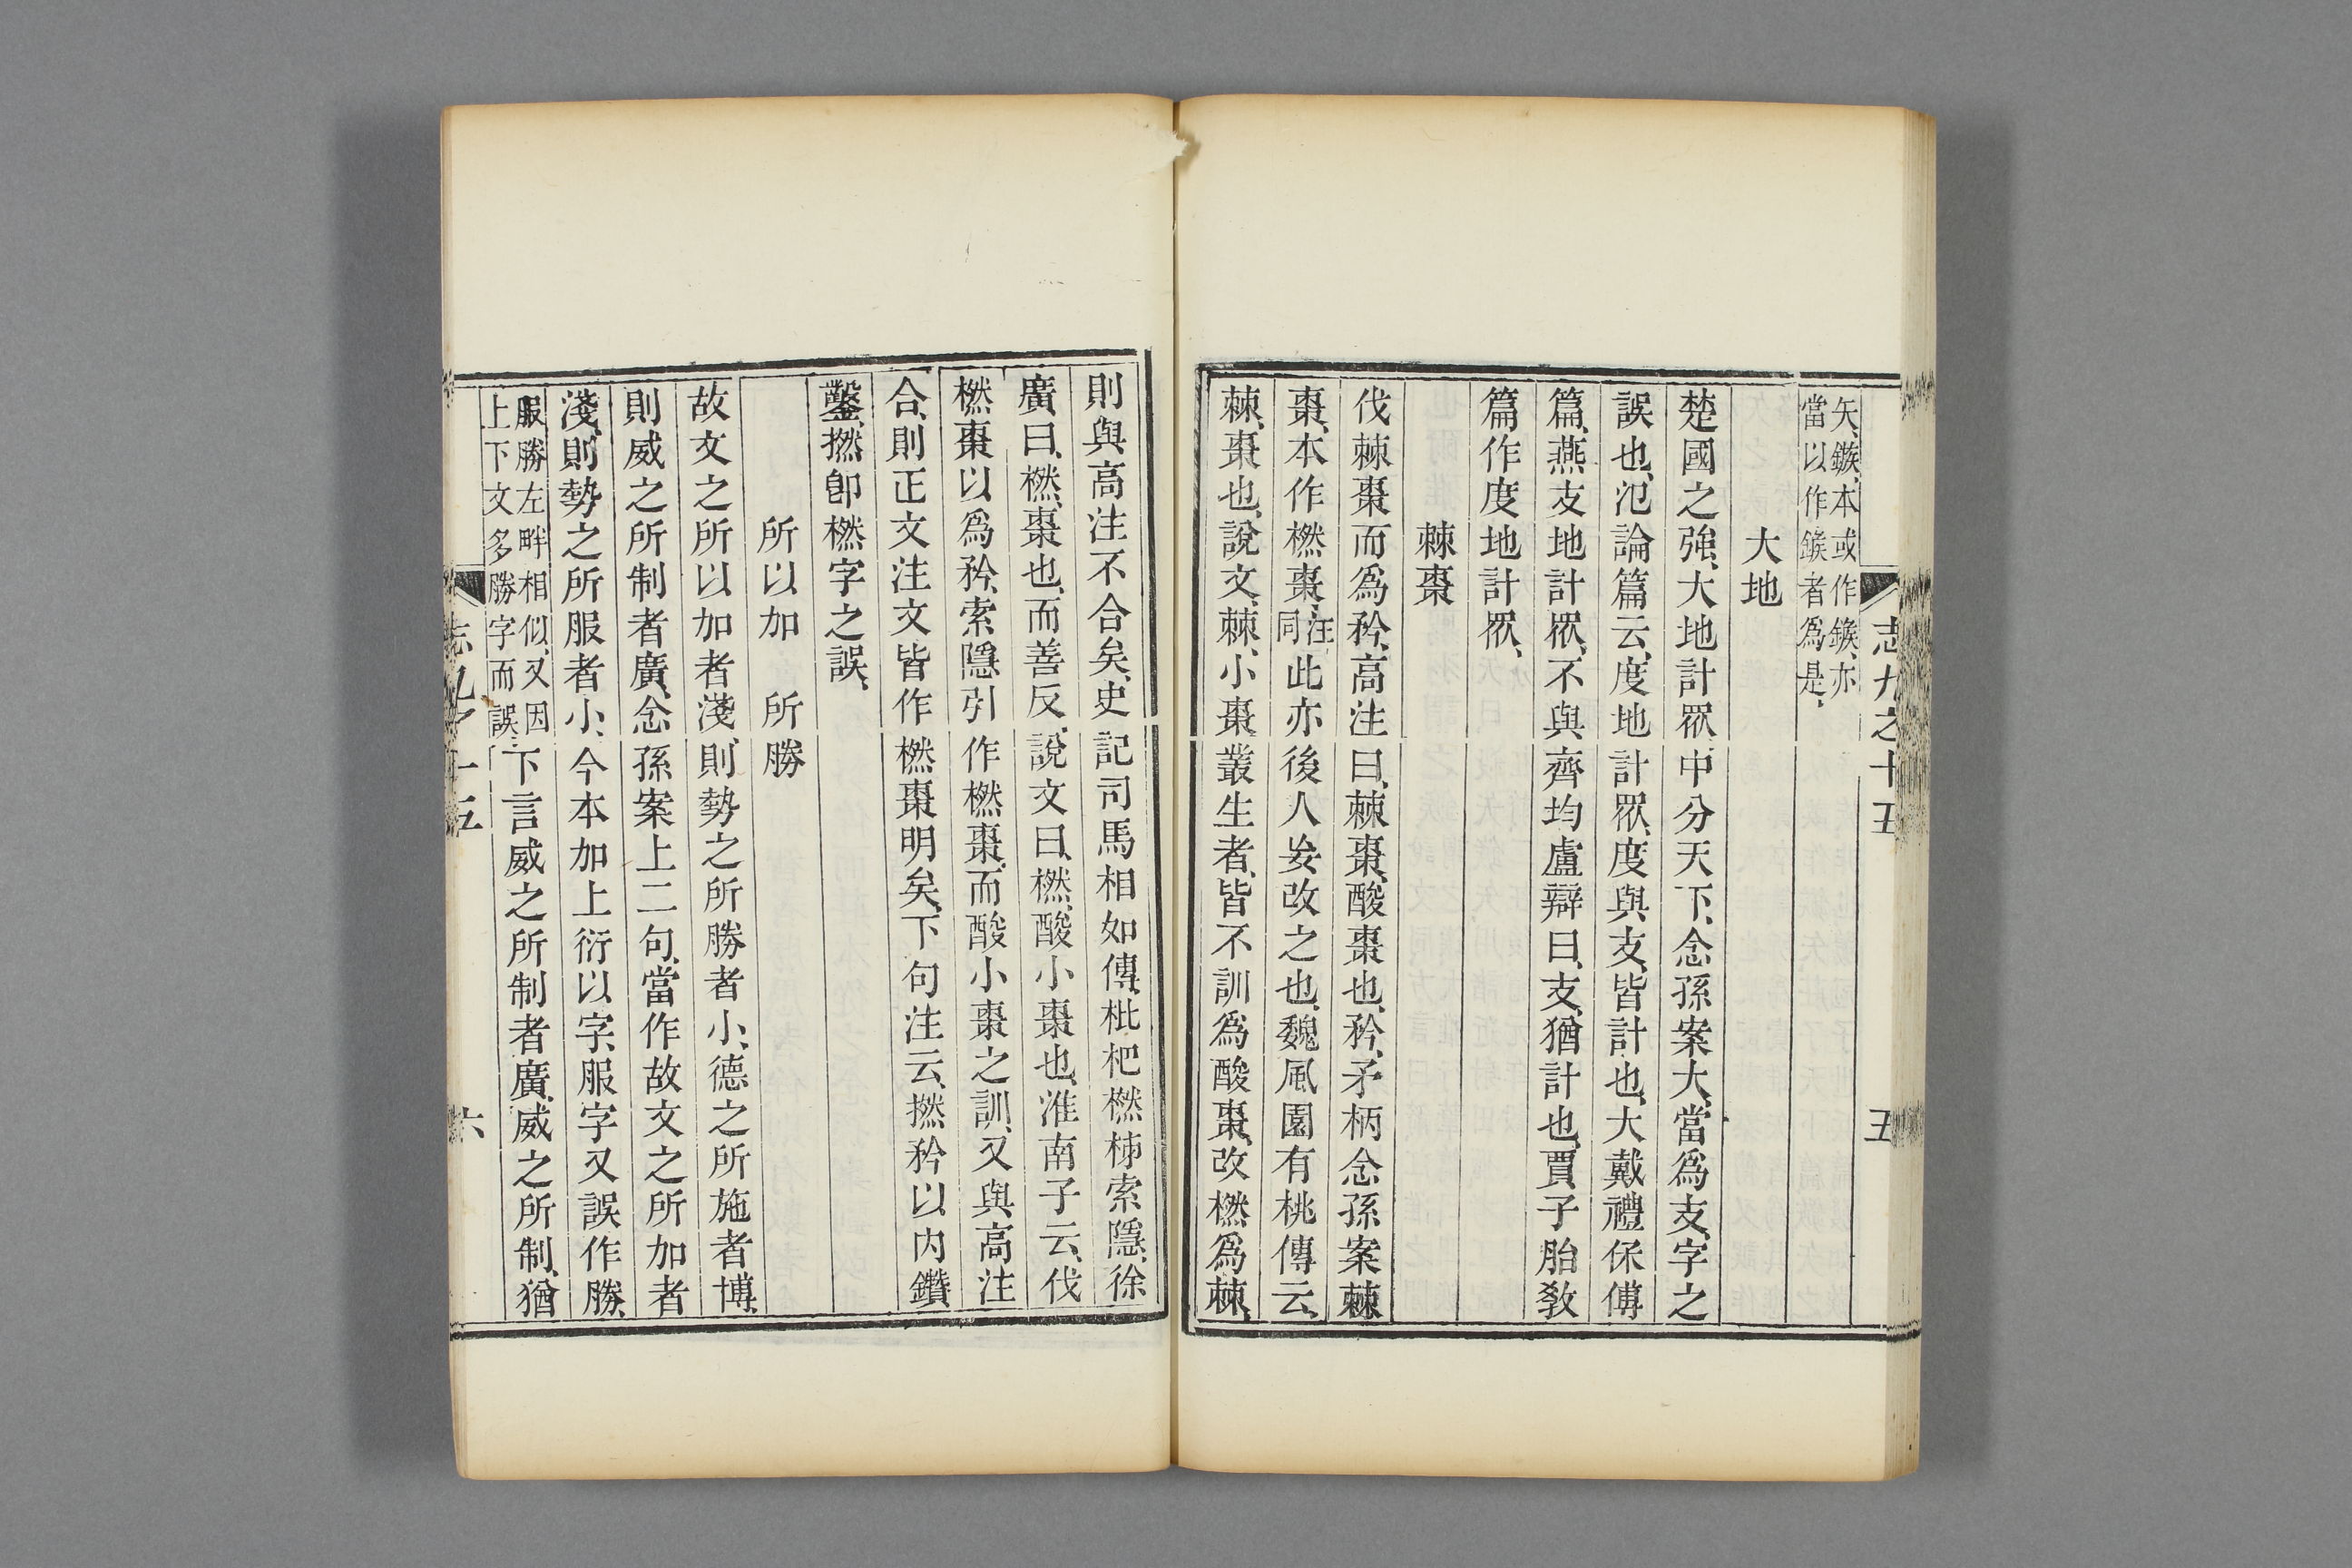 志九之十五
五
矢鏃、本或作鏃、亦
當以作鍭者爲是、
大地
楚國之強、大地計眾、中分天下、念孫案大、當爲支、字之
誤也、氾論篇云、度地計眾、度與支、皆計也、大戴禮保傅
篇、燕支地計眾、不與齊均、盧辯曰、支、猶計也、賈子胎教
篇作度地計眾、
棘棗
伐棘棗而爲矜、高注曰、棘棗、酸棗也、矜、矛柄、念孫案棘
棗、本作橪棗、注
同此亦後人妄改之也、魏風園有桃傳云、
棘、棗也、說文、棘、小棗叢生者、皆不訓爲酸棗、改橪爲棘、
則與高注不合矣、史記司馬相如傳、枇杷橪柿、索隱、徐
廣曰、橪、棗也、而善反、說文曰、橪、酸小棗也、淮南子云、伐
橪棗以爲矜、索隱引作橪棗、而酸小棗之訓、又與高注
合、則正文注文皆作橪棗明矣、下句注云、撚矜以內鑽
鑿、撚卽橪字之誤、
所以加　所勝
故文之所以加者淺、則勢之所勝者小、德之所施者博、
則威之所制者廣、念孫案上二句、當作故文之所加者
淺、則勢之所服者小、今本加上衍以字、服字又誤作勝、
服勝左畔相似、又因
上下文多勝字而誤、下言威之所制者廣、威之所制、猶
志九之十五
六